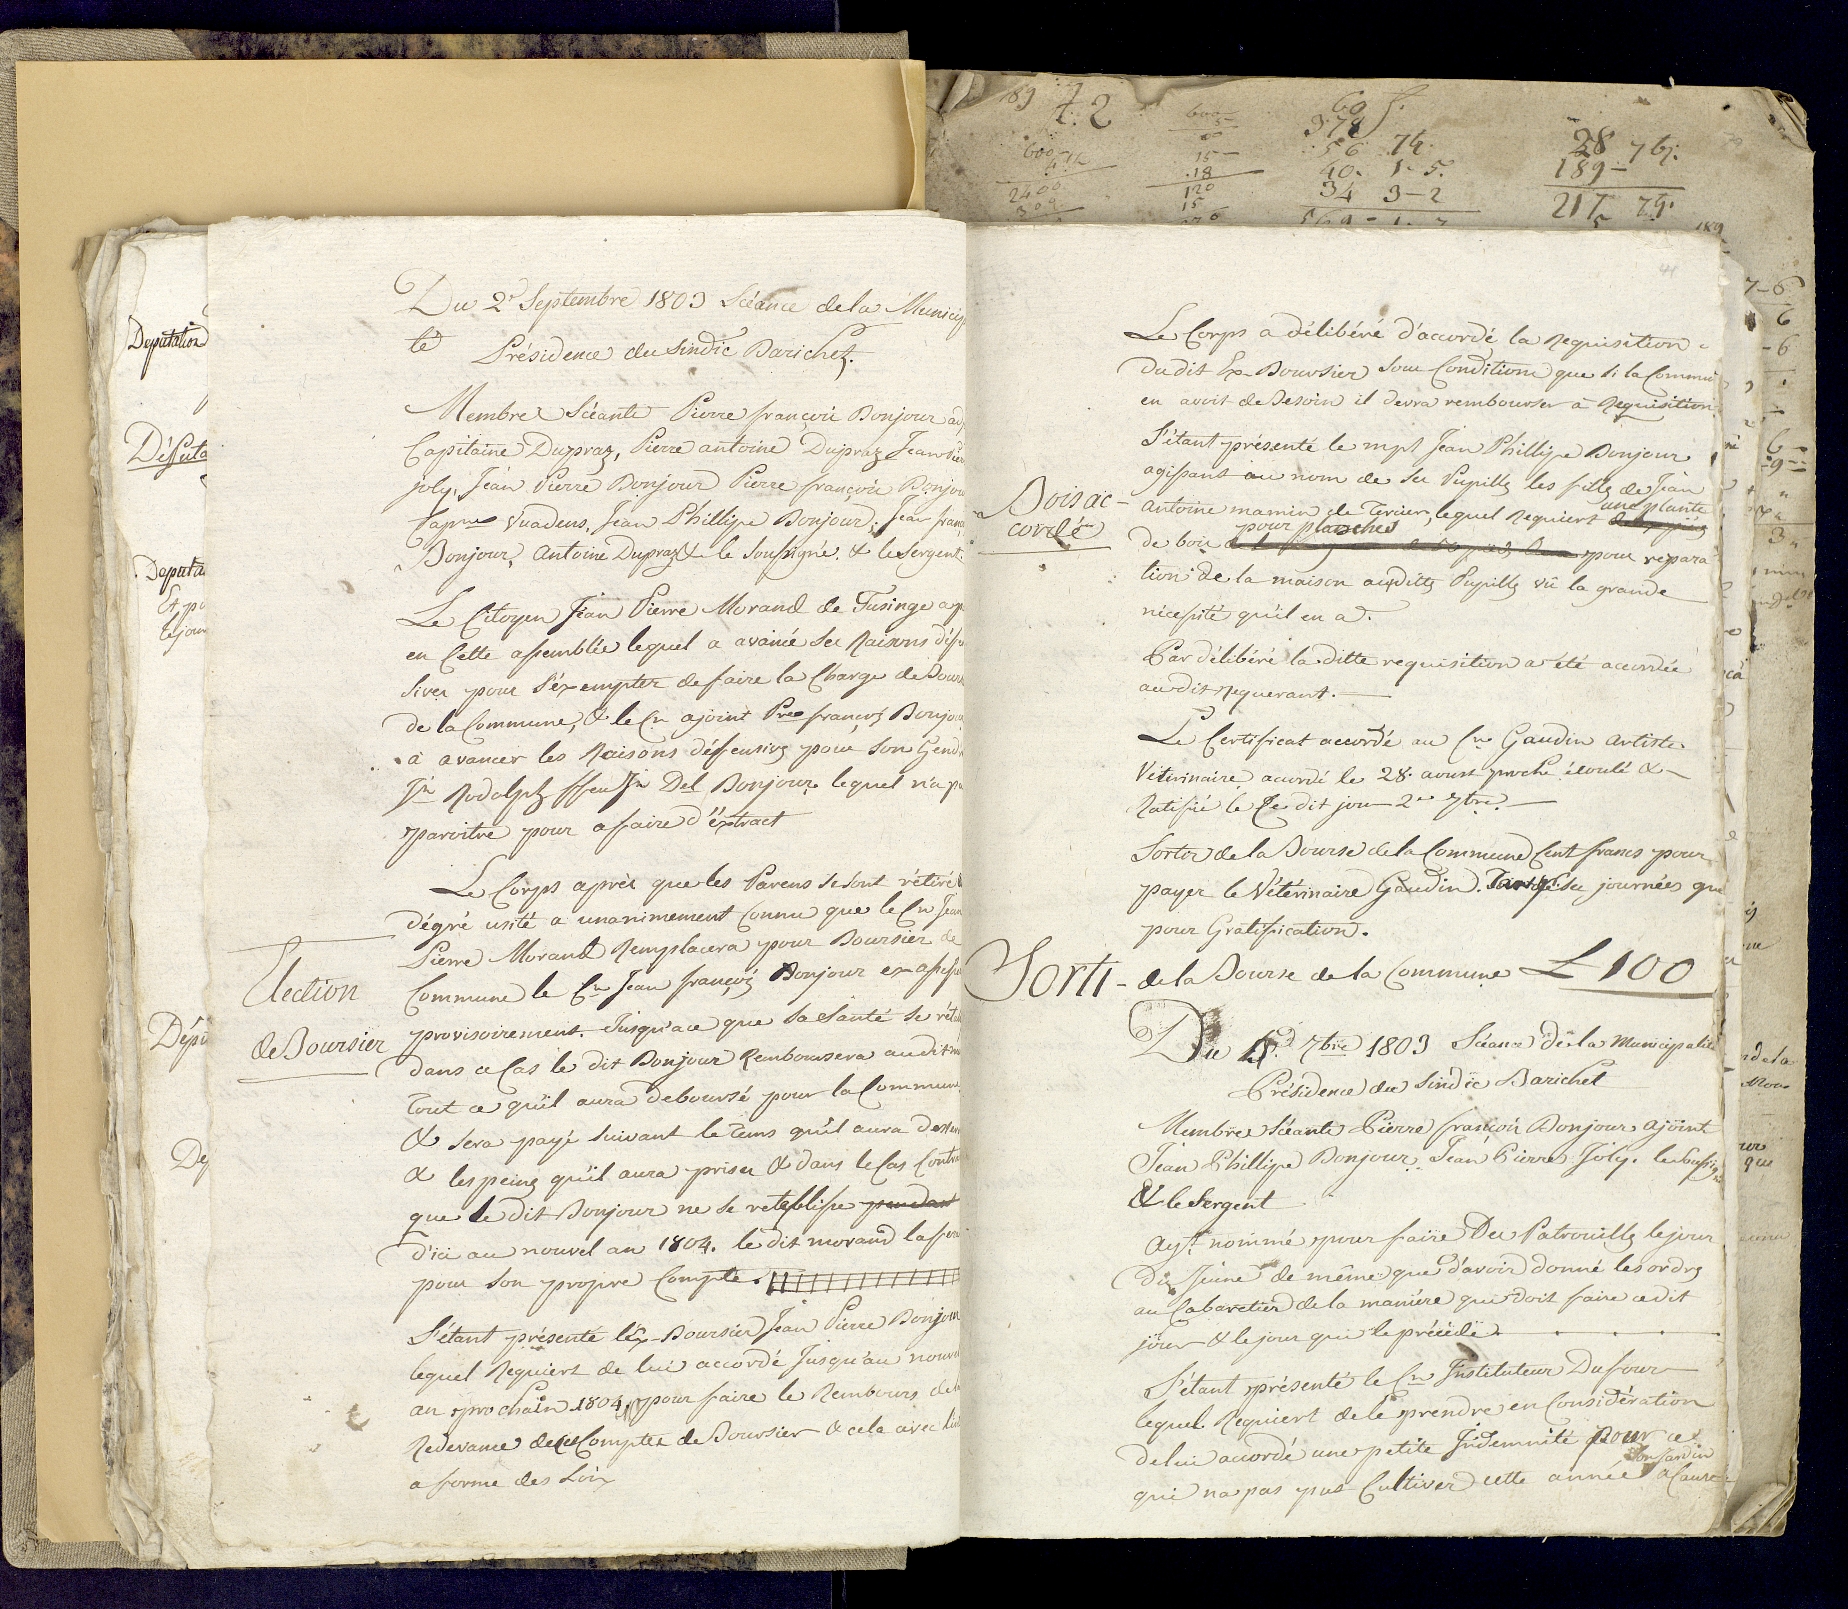 Deputation
Députa
Deputa
Et po
le jour
Dépu
Dep
Du 2d Septembre 1803 Scéance de la Municip
té Présidence du Sindic Barichet.
Membres Scéants Pierre françois Bonjour adj
Capitaine Dupraz, Pierre antoine Dupraz Jean Pier
joly, Jean Pierre Bonjour Pierre françois Bonjou
Vuadens, Jean Phillipe Bonjour, Jean franç
Bonjour, Antoine Dupraz & le Soussigné. & le Sergent.
Le Citoyen Jean Pierre Morand de Fusinge a p
en Cette assemblée lequel a avancé ses Raisons déffen
sives pour s'éxempter de faire la Charge de Bours
de la Commune, & le Cn ajoint Pre françois Bonjou
à avancer les Raisons déffensives pour son Gend
Jn Rodolph ffeu Jn Del Bonjour lequel n'a pu
paroitre pour afaire d'éxtract
Le Corps après que les Parens se sont rétiré
dégré usité a unanimement Connu que le Cn Jean
Election
Pierre Morand Remplacera pour Boursier de
Commune le Cn Jean françois Bonjour ex assess
de Boursier
provisoirement. Jusqu'ace que sa Santé se rétab
dans ce Cas le dit Bonjour Remboursera au dit m
Tout ce qu'il aura deboursé pour la Commune
& sera payé suivant le Tems qu'il aura desserv
& les peines qu'il aura prises & dans le Cas Contra
que le dit Bonjour ne se retablisse pendant
d'ici au nouvel an 1804. le dit morand la fera
pour son propre Compte.
S'étant présenté léx-Boursier Jean Pierre Bonjour
lequel Requiert de lui accordé Jusqu'au nouve
an prochain 1804 pour faire le Rembours de la
Redevance de ses Comptes de Boursier & cela avec
a forme des Loix
189 72
600
2400
15
18
120
15
60 f.
378
56 74.
40. 1-5.
34 3-2
569-1-7
28 7bz.
189-
217 7bz.
41
Le Corps a délibéré d'accordé la Requisition
du dit Ex-Boursier Sous Conditions que si la Commu
en avoit de Besoin il devra rembourser à Requisition.
S'étant présenté le mpl Jean Phillipe Bonjour
agissant au nom de ses Pupilles les filles de Jean
Bois ac-
cordé
antoine mamin de Tercier, lequel Requiert une plante
de bois pour planches pour repara
tion de la maison auxdittes Pupilles vû la grande
nécessité qu'il en a.
Par délibéré la ditte requisition a été accordée
au dit Requerant.
Le Certificat accordé au Cne Gaudin Artiste
Vétérinaire acordé le 28. aoust proche écoulé &
Ratifié le Ce dit jour 2me 7bre.
Sortir de la Bourse de la Commune Cent francs pour
payer le Vétérinaire Gaudin. Tant pr. ses journées que
pour Gratification.
Sorti - de la Bourse de la Commune L 100
Du 7bre 1803 Séance de la Municipalité
Présidence du Sindic Barichet
Membres Scéants Pierre françois Bonjour ajoint
Jean Phillipe Bonjour. Jean Pierre Joly. le Soussigné
& le Sergent
Ayt nommé pour faire Des Patrouilles le jour
du Jeune de même que d'avoir donné les ordres
au Cabaretier de la maniere qui doit faire ce dit
jour & le jour qui le précédé . . . . .
S'étant présenté le Cn Instituteur Dufour
lequel Requiert de le prendre en Considération
de lui accordé une petite Indemnité Pour ce
qui na pas put Cultiver son jardin cette année à Cause